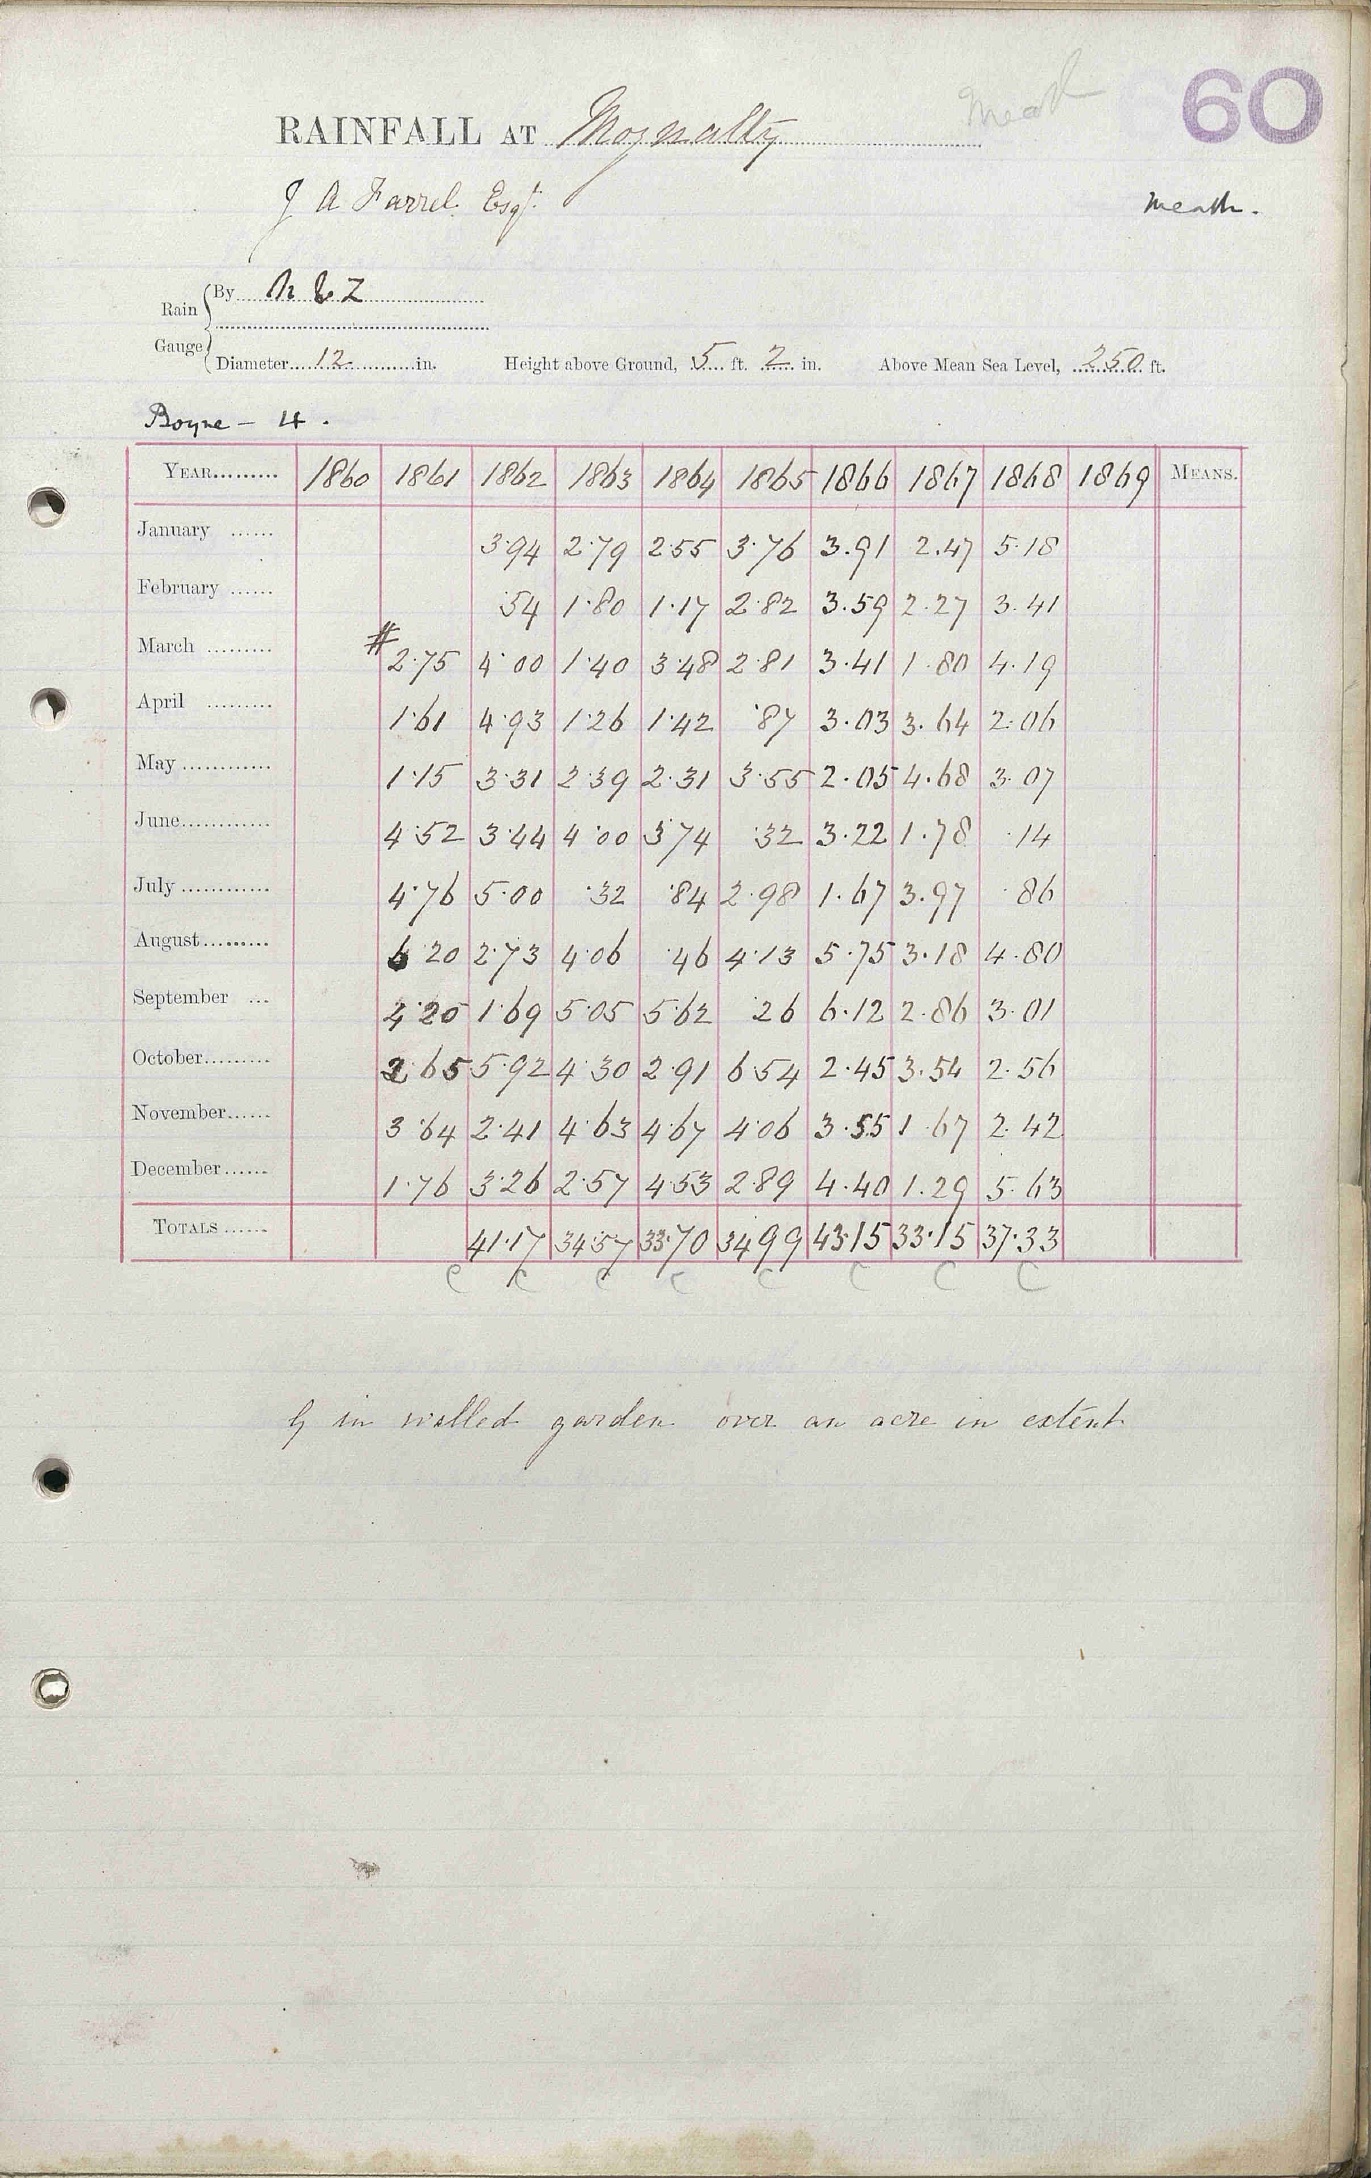 60
Meath
RAINFALL AT Moynalty
J A Farrel Esqr.
Meath.
Rain Gauge
By N & Z
Diameter 12 in. Height above Ground, 5 ft. 2 in. Above Mean Sea Level, 250 ft.
Boyne - 4.
YEAR 1860 1861 1862 1863 1864 1865 1866 1867 1868 1869 MEANS.
January 3.94 2.79 2.55 3.76 3.91 2.47 5.18
February .54 1.80 1.17 2.82 3.59 2.27 3.41
March # 2.75 4.00 1.40 3.48 2.81 3.41 1.80 4.19
April 1.61 4.93 1.26 1.42 .87 3.03 3.64 2.06
May 1.15 3.31 2.39 2.31 3.55 2.05 4.68 3.07
June 4.52 3.44 4.00 3.74 .32 3.22 1.78 .14
July 4.76 5.00 .32 .84 2.98 1.67 3.97 .86
August 6.20 2.73 4.06 .46 4.13 5.75 3.18 4.80
September 4.20 1.69 5.05 5.62 .26 6.12 2.86 3.01
October 2.65 5.92 4.30 2.91 6.54 2.45 3.54 2.56
November 3.64 2.41 4.63 4.67 4.06 3.55 1.67 2.42
December 1.76 3.26 2.57 4.53 2.89 4.40 1.29 5.63
TOTALS 41.17 34.57 33.70 34.99 43.15 33.15 37.33
C C C C C C C C
G in walled garden over an acre in extent